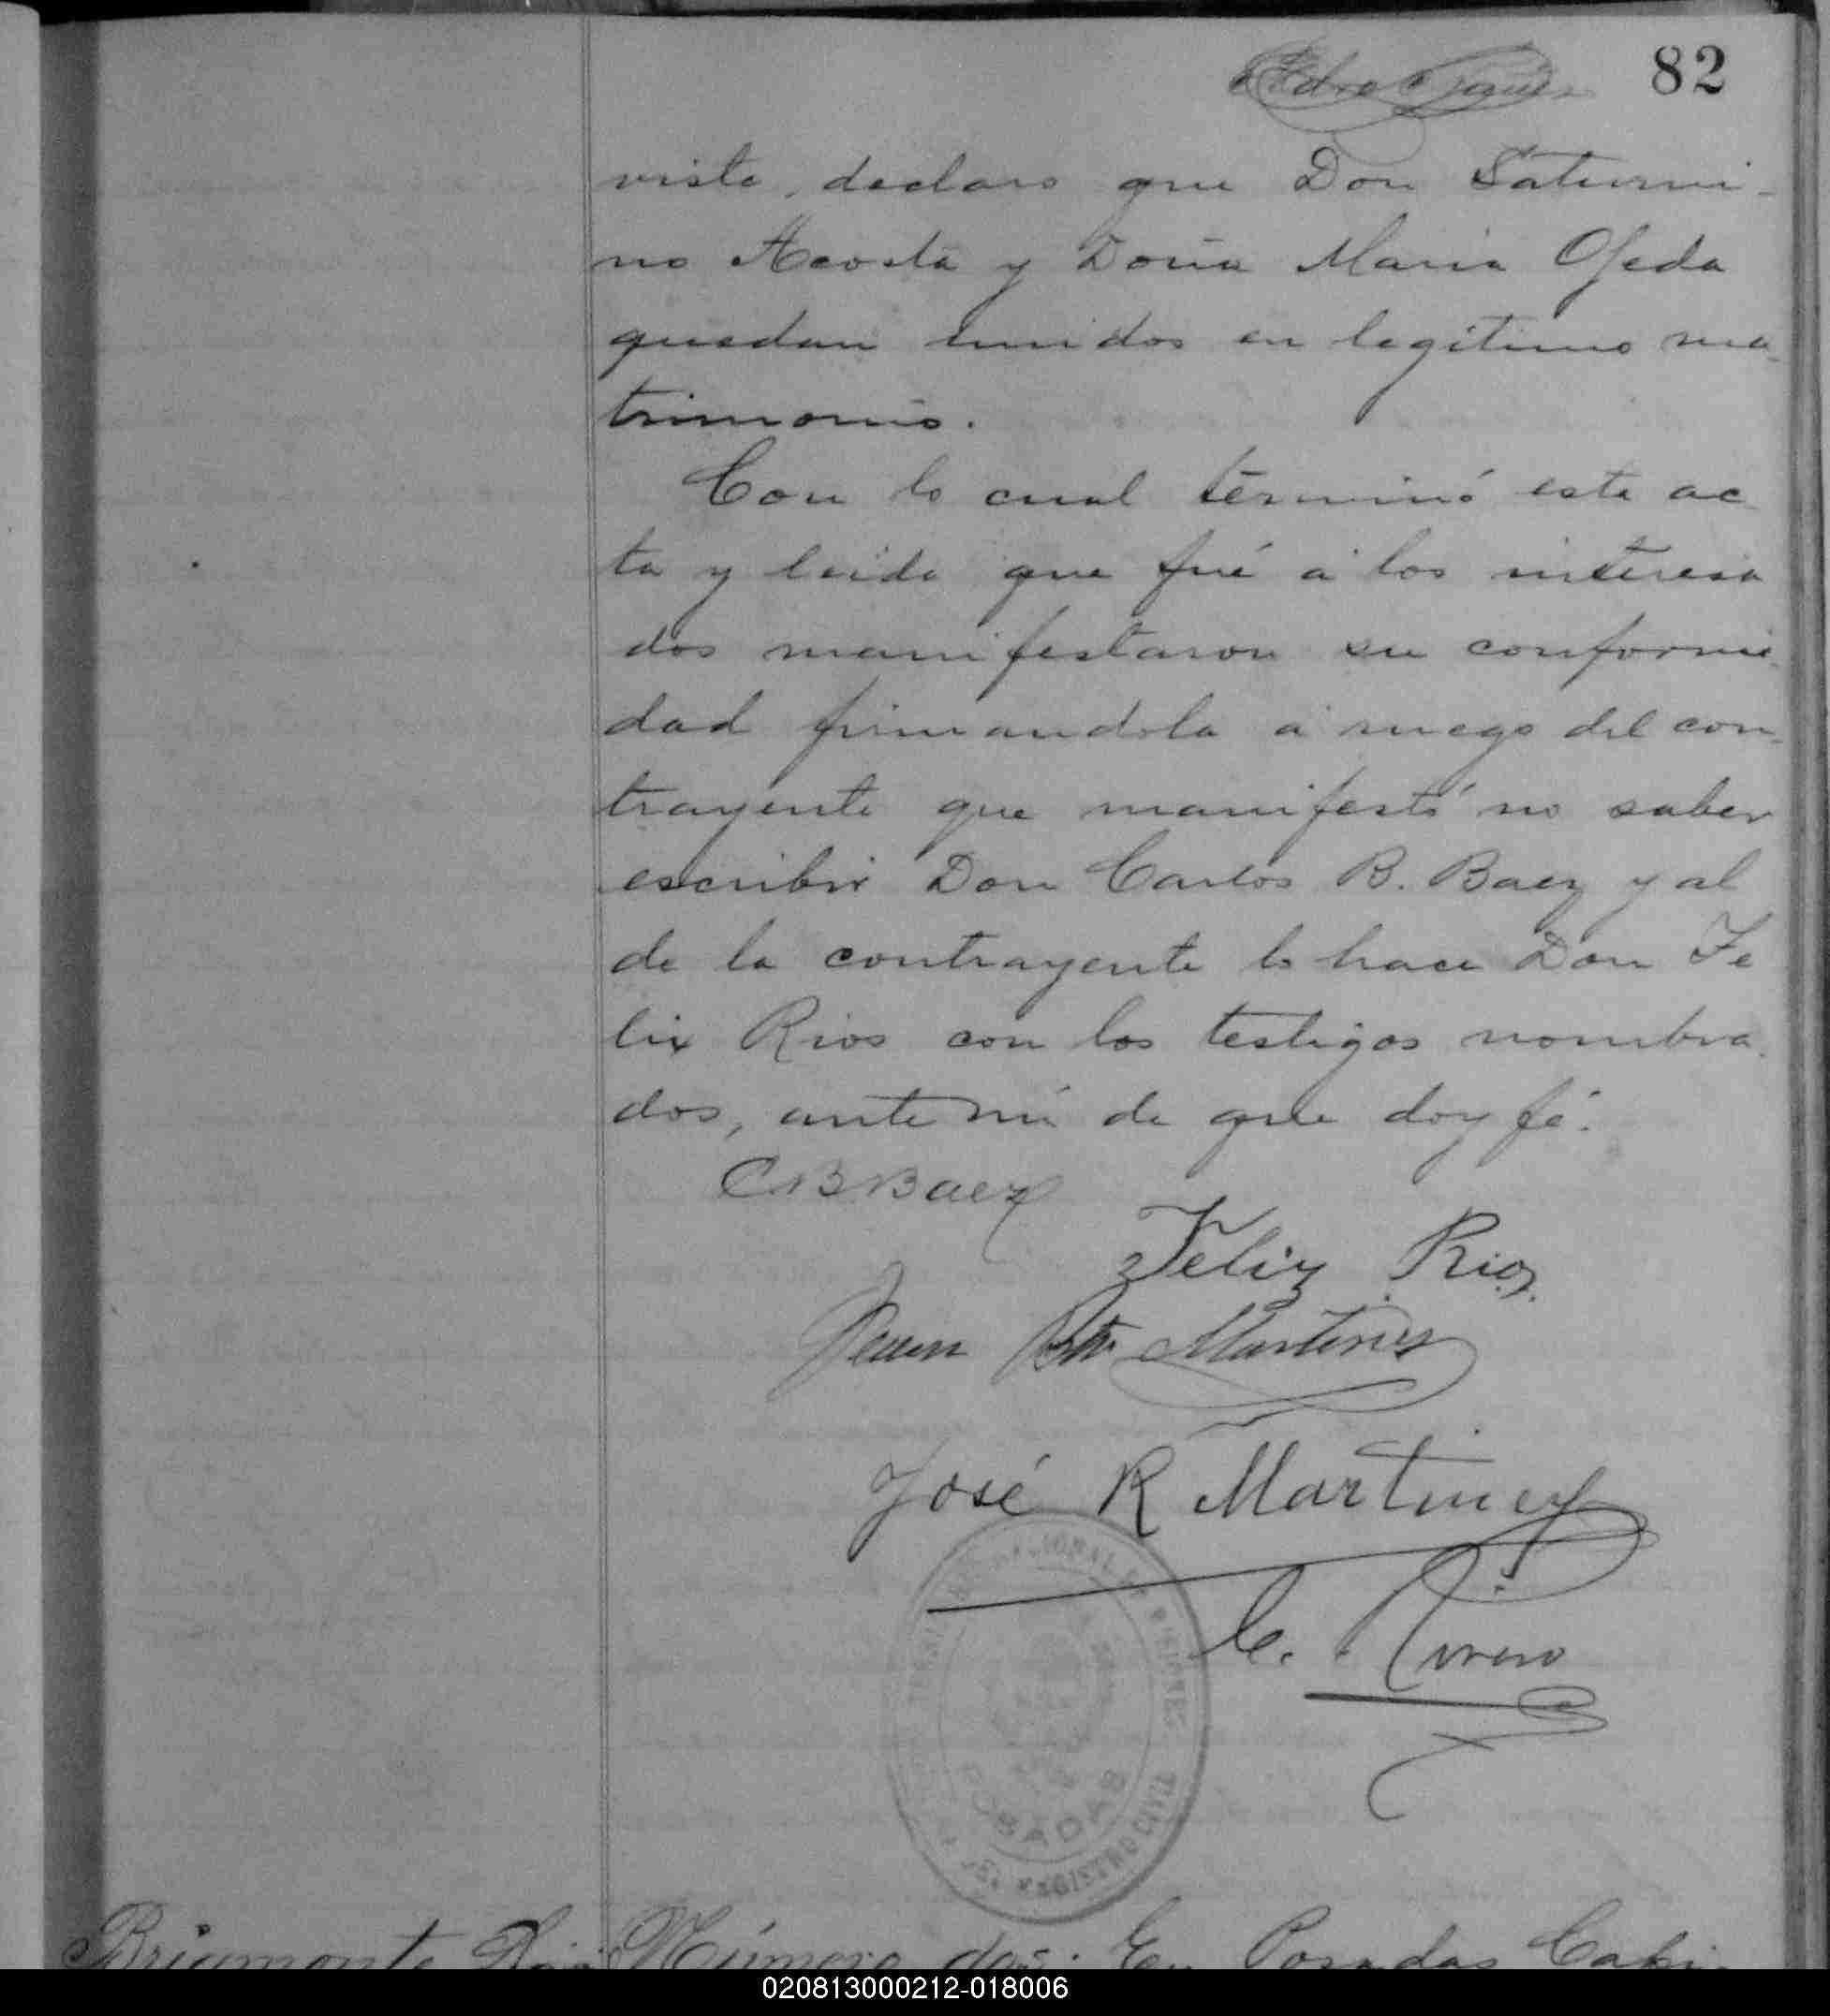 82
viste, declaro que Don Saturni-
no Acosta y Doña Maria Ojeda
quedan unidos en legítimo ma-
trimonio.
Con lo cual terminó esta ac
ta y leida que fué á los interesa
dos manifestaron su conformi-
dad firmandola á ruego del con-
trayente que manifestó no saber
escribir Don Carlos B. Baez y al
de la contrayente lo hace Don Fe
lix Rios con los testigos nombra-
dos, ante mí de que doy fé.
C B Baez
Felix Rios
Juan Bta Martinez
José R Martinez
C. Rivero
POSADAS
REGISTRO CIVIL
Número dos: En Posadas Capi-
020813000212-018006